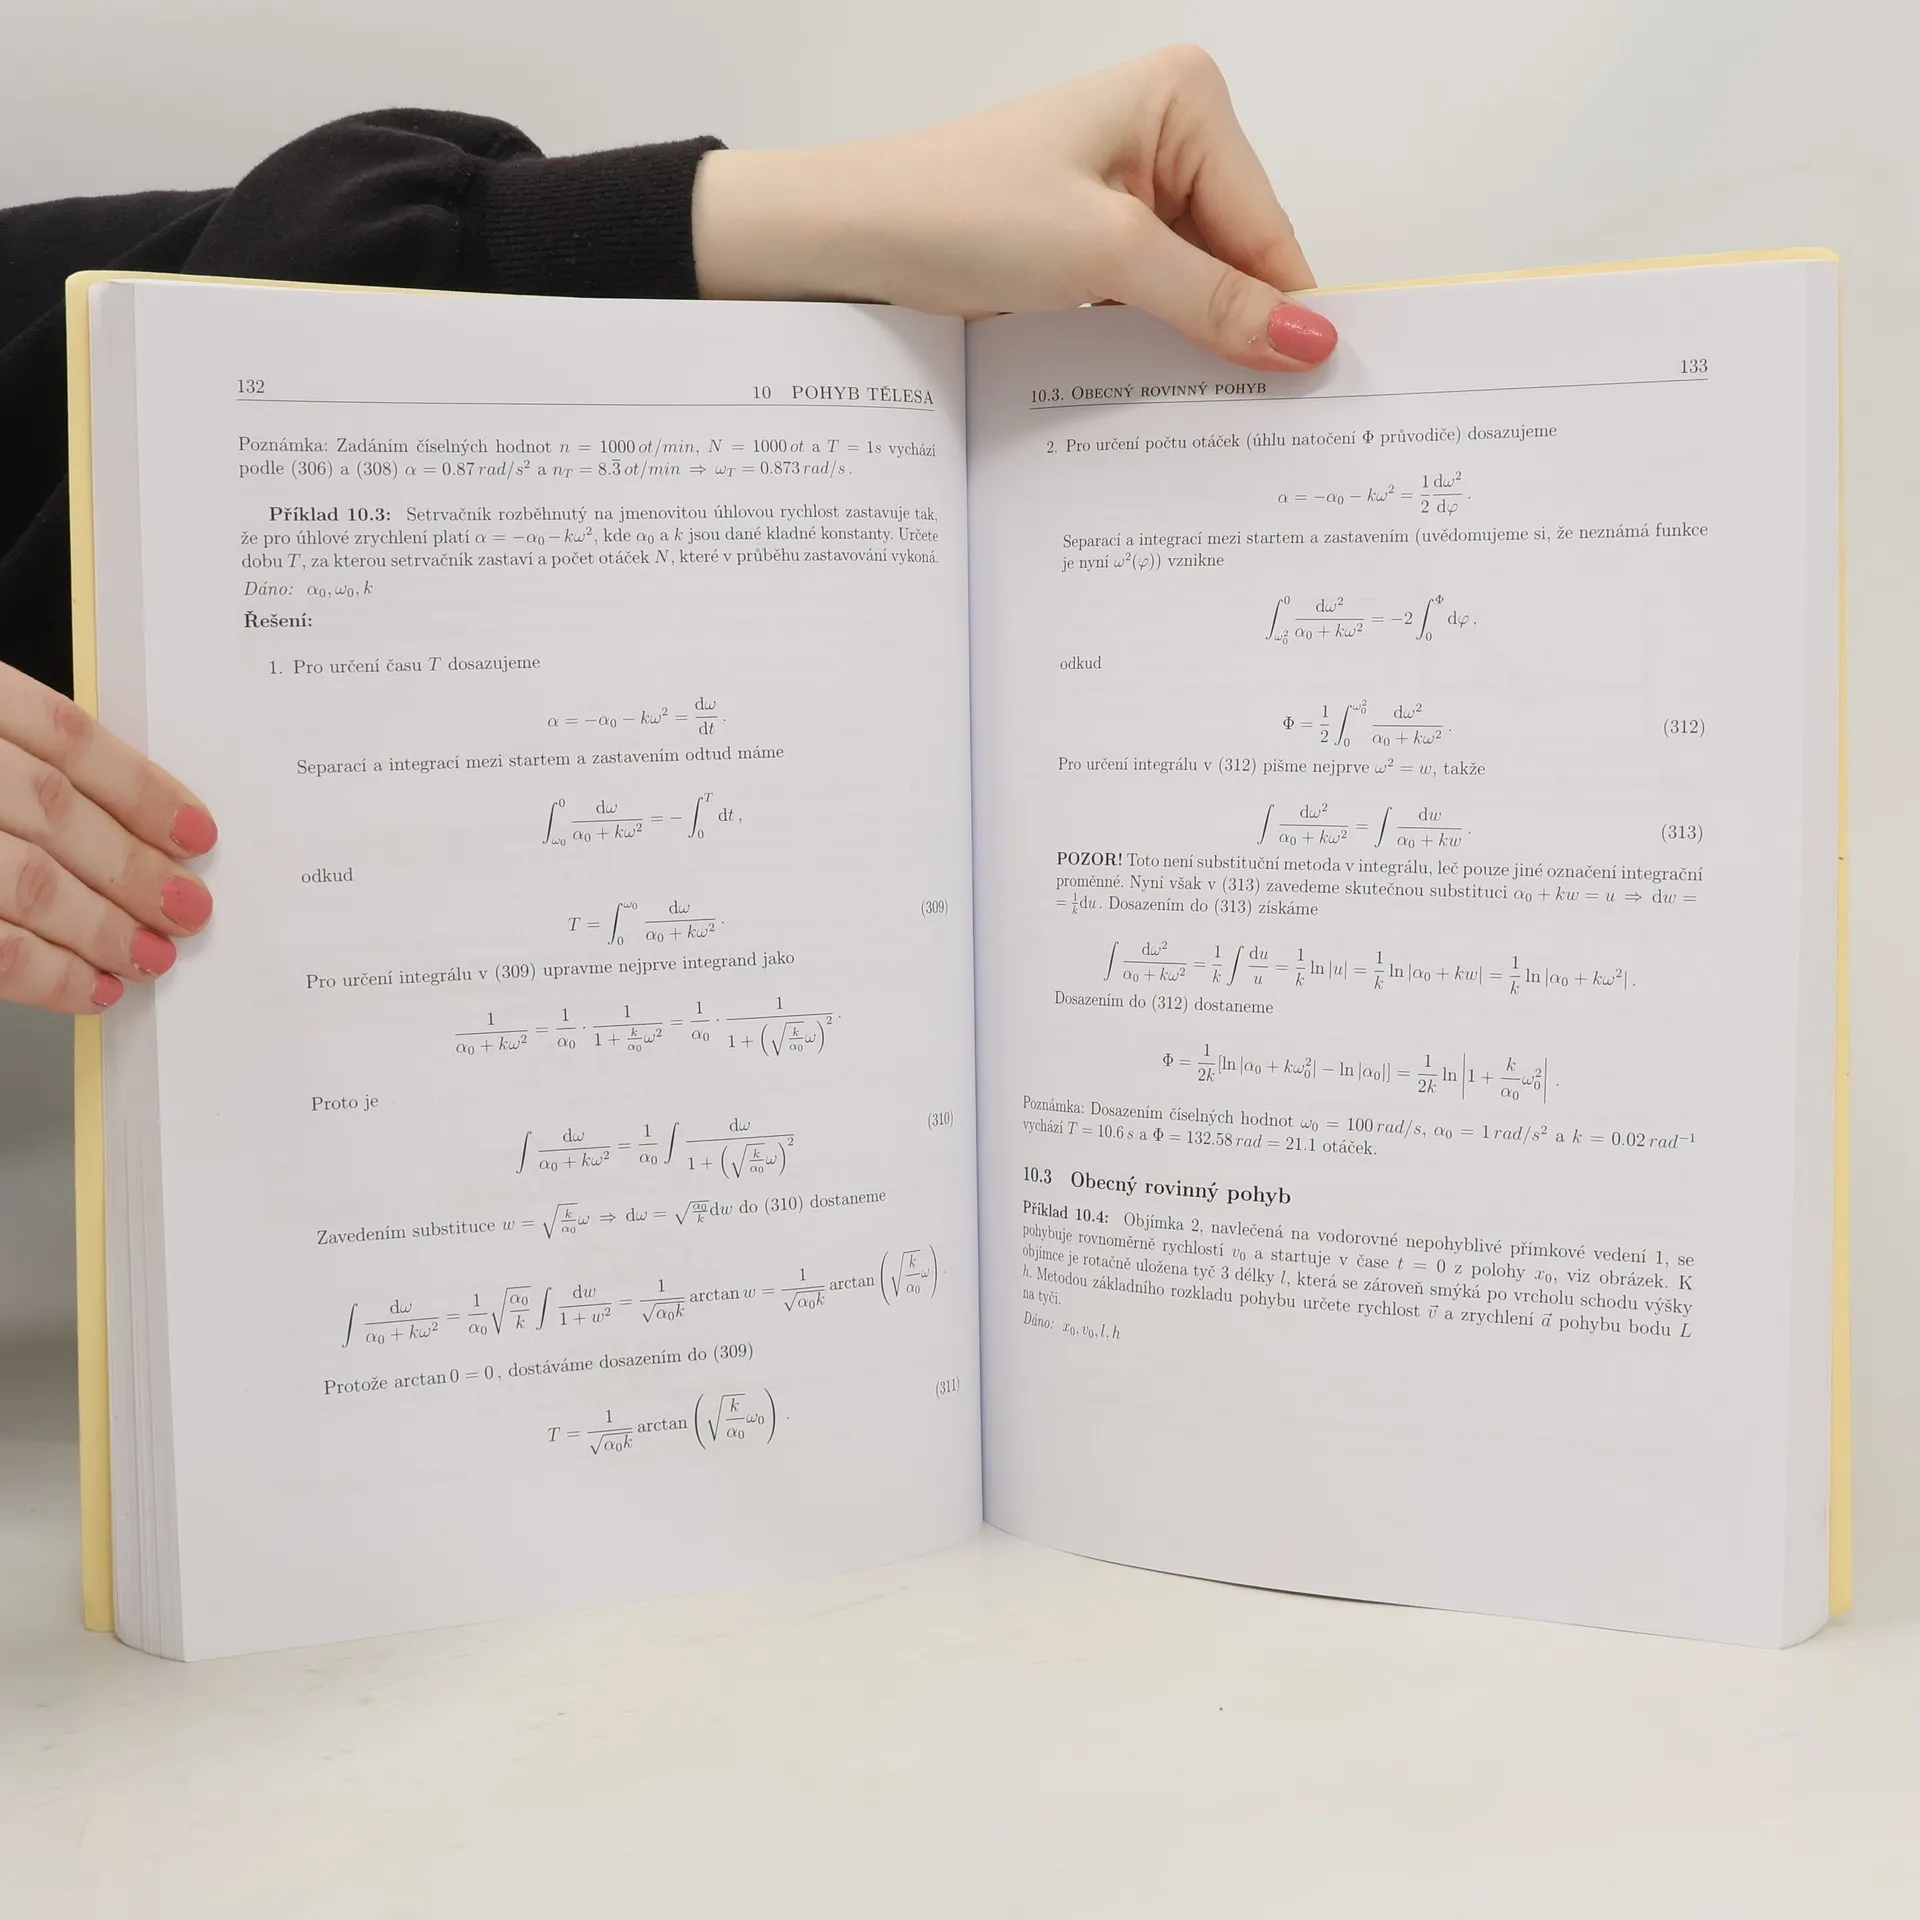 132
10 POHYB TĚLESA
Poznámka: Zadáním číselných hodnot n = 1000 ot/min, N = 1000 ot a T = 1s vychází
podle (306) a (308) α = 0.87 rad/s² a n_T = 8.3̅ ot/min ⇒ ω_T = 0.873 rad/s.
Příklad 10.3: Setrvačník rozběhnutý na jmenovitou úhlovou rychlost zastavuje tak,
že pro úhlové zrychlení platí α = −α₀ − kω², kde α₀ a k jsou dané kladné konstanty. Určete
dobu T, za kterou setrvačník zastaví a počet otáček N, které v průběhu zastavování vykoná.
Dáno: α₀, ω₀, k
Řešení:
1. Pro určení času T dosazujeme
α = −α₀ − kω² = dω/dt .
Separací a integrací mezi startem a zastavením odtud máme
∫_{ω₀}^{0} dω/(α₀ + kω²) = − ∫_{0}^{T} dt ,
odkud
T = ∫_{0}^{ω₀} dω/(α₀ + kω²) . (309)
Pro určení integrálu v (309) upravme nejprve integrand jako
1/(α₀ + kω²) = 1/α₀ · 1/(1 + (k/α₀)ω²) = 1/α₀ · 1/(1 + (√(k/α₀)ω)²) .
Proto je
∫ dω/(α₀ + kω²) = 1/α₀ ∫ dω/(1 + (√(k/α₀)ω)²) (310)
Zavedením substituce w = √(k/α₀)ω ⇒ dω = √(α₀/k)dw do (310) dostaneme
∫ dω/(α₀ + kω²) = 1/α₀ √(α₀/k) ∫ dw/(1 + w²) = 1/√(α₀k) arctan w = 1/√(α₀k) arctan (√(k/α₀)ω) .
Protože arctan 0 = 0 , dostáváme dosazením do (309)
T = 1/√(α₀k) arctan (√(k/α₀)ω₀) . (311)
10.3. OBECNÝ ROVINNÝ POHYB
133
2. Pro určení počtu otáček (úhlu natočení Φ průvodiče) dosazujeme
α = −α₀ − kω² = 1/2 dω²/dφ .
Separací a integrací mezi startem a zastavením (uvědomujeme si, že neznámá funkce
je nyní ω²(φ)) vznikne
∫_{ω₀²}^{0} dω²/(α₀ + kω²) = −2 ∫_{0}^{Φ} dφ ,
odkud
Φ = 1/2 ∫_{0}^{ω₀²} dω²/(α₀ + kω²) . (312)
Pro určení integrálu v (312) pišme nejprve ω² = w, takže
∫ dω²/(α₀ + kω²) = ∫ dw/(α₀ + kw) . (313)
POZOR! Toto není substituční metoda v integrálu, leč pouze jiné označení integrační
proměnné. Nyní však v (313) zavedeme skutečnou substituci α₀ + kw = u ⇒ dw =
= 1/k du . Dosazením do (313) získáme
∫ dω²/(α₀ + kω²) = 1/k ∫ du/u = 1/k ln |u| = 1/k ln |α₀ + kw| = 1/k ln |α₀ + kω²| .
Dosazením do (312) dostaneme
Φ = 1/2k [ln |α₀ + kω₀²| − ln |α₀|] = 1/2k ln |1 + k/α₀ ω₀²| .
Poznámka: Dosazením číselných hodnot ω₀ = 100 rad/s, α₀ = 1 rad/s² a k = 0.02 rad⁻¹
vychází T = 10.6 s a Φ = 132.58 rad = 21.1 otáček.
10.3 Obecný rovinný pohyb
Příklad 10.4: Objímka 2, navlečená na vodorovné nepohyblivé přímkové vedení 1, se
pohybuje rovnoměrně rychlostí v₀ a startuje v čase t = 0 z polohy x₀, viz obrázek. K
objímce je rotačně uložena tyč 3 délky l, která se zároveň smýká po vrcholu schodu výšky
h. Metodou základního rozkladu pohybu určete rychlost v⃗ a zrychlení a⃗ pohybu bodu L
na tyči.
Dáno: x₀, v₀, l, h